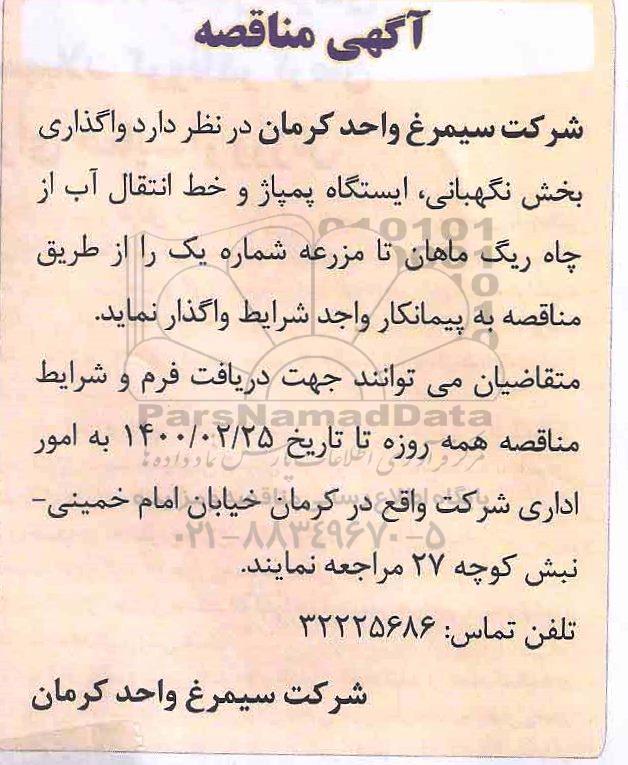 آگهی مناقصه
شرکت سیمرغ واحد کرمان در نظر دارد واگذاری
بخش نگهبانی، ایستگاه پمپاژ و خط انتقال آب از
چاه ریگ ماهان تا مزرعه شماره یک را از طریق
مناقصه به پیمانکار واجد شرایط واگذار نماید.
متقاضیان می توانند جهت دریافت فرم و شرایط
ParsNamadData
مناقصه همه روزه تا تاریخ ۱۴۰۰/۰۲/۲۵ به امور
اداری شرکت واقع در کرمان خیابان امام خمینی-
۰۲۱-۸۸۳۴۹۶۷۰-۵
نبش کوچه ۲۷ مراجعه نمایند.
تلفن تماس: ۳۲۲۲۵۶۸۶
شرکت سیمرغ واحد کرمان